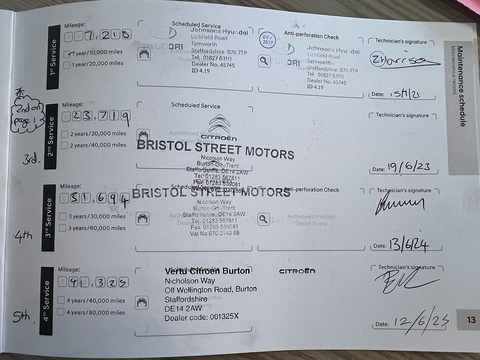 Scheduled Service
Anti-perforation Check
Technician's signature
Maintenance schedule
Maintenance record
1st Service
Mileage:
7,210
1 year/10,000 miles
1 year/20,000 miles
Johnsons Hyundai
Lichfield Road
Tamworth
Staffordshire B79 7TP
Tel. 01827 63111
Dealer No. 45745
ID 4.19
Johnsons Hyundai
Lichfield Road
Tamworth
Staffordshire B79 7TP
Dealer No. 45745
ID 4.19
Date:
2nd on page 1
3rd.
2nd Service
Mileage:
23,719
2 years/20,000 miles
2 years/40,000 miles
Scheduled Service
CITROËN
BRISTOL STREET MOTORS
Nicolson Way
Burton-On-Trent
Staffordshire, DE14 2AW
Technician's signature
Date: 19/6/23
4th
3rd Service
Mileage:
31,694
3 years/30,000 miles
3 years/60,000 miles
BRISTOL STREET MOTORS
Anti-perforation Check
Nicolson Way
Burton-On-Trent
Staffordshire, DE14 2AW
Technician's signature
Date: 13/6/24
5th
4th Service
Mileage:
41,323
4 years/40,000 miles
4 years/80,000 miles
Vertu Citroen Burton
Nicholson Way
Off Wellington Road, Burton
Staffordshire
DE14 2AW
Dealer code: 001325X
CITROËN
Technician's signature
Date: 12/6/25
13